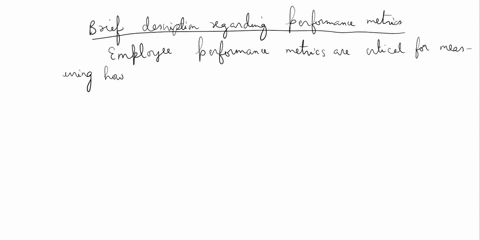 Brief desription regarding performance metrics
Employee performance metrics are critical for meas-
uring how